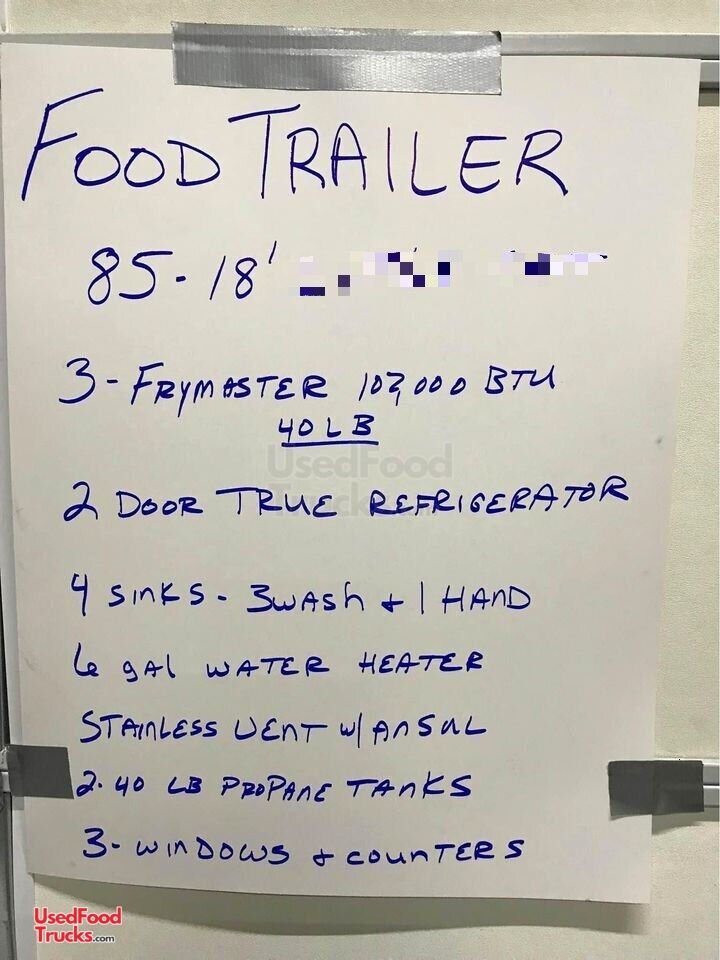 FOOD TRAILER
85-18'
3-FRYMASTER 102,000 BTU
40 LB
UsedFood
Trucks.com
2 DOOR TRUE REFRIGERATOR
4 SINKS - 3 WASH + 1 HAND
6 gal WATER HEATER
STAINLESS VENT w/ ANSUL
2-40 LB PROPANE TANKS
3-WINDOWS + COUNTERS
UsedFood
Trucks.com